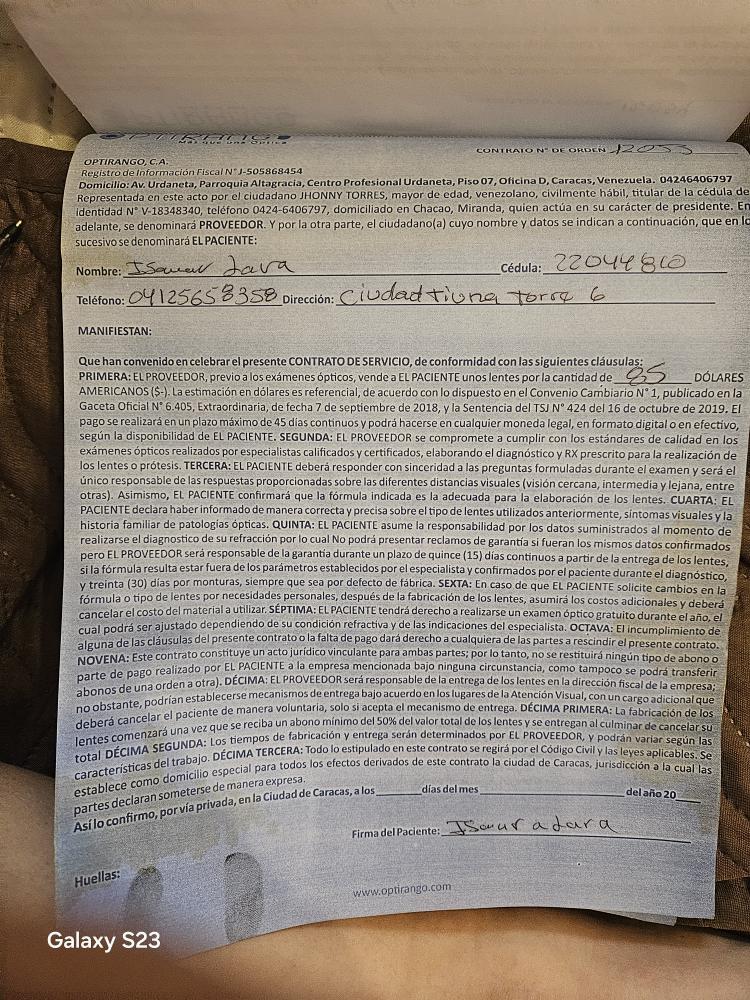 OPTIRANGO
Más que una Óptica
CONTRATO N° DE ORDEN 12053
OPTIRANGO, C.A.
Registro de Información Fiscal N° J-505868454
Domicilio: Av. Urdaneta, Parroquia Altagracia, Centro Profesional Urdaneta, Piso 07, Oficina D, Caracas, Venezuela. 04246406797
Representada en este acto por el ciudadano JHONNY TORRES, mayor de edad, venezolano, civilmente hábil, titular de la cédula de
identidad N° V-18348340, teléfono 0424-6406797, domiciliado en Chacao, Miranda, quien actúa en su carácter de presidente. En
adelante, se denominará PROVEEDOR. Y por la otra parte, el ciudadano(a) cuyo nombre y datos se indican a continuación, que en lo
sucesivo se denominará EL PACIENTE:
Nombre: Isamar Lara Cédula: 22044810
Teléfono: 04125658358 Dirección: Ciudad Tiuna torre 6
MANIFIESTAN:
Que han convenido en celebrar el presente CONTRATO DE SERVICIO, de conformidad con las siguientes cláusulas:
PRIMERA: EL PROVEEDOR, previo a los exámenes ópticos, vende a EL PACIENTE unos lentes por la cantidad de 85 DÓLARES
AMERICANOS ($-). La estimación en dólares es referencial, de acuerdo con lo dispuesto en el Convenio Cambiario N° 1, publicado en la
Gaceta Oficial N° 6.405, Extraordinaria, de fecha 7 de septiembre de 2018, y la Sentencia del TSJ N° 424 del 16 de octubre de 2019. El
pago se realizará en un plazo máximo de 45 días continuos y podrá hacerse en cualquier moneda legal, en formato digital o en efectivo,
según la disponibilidad de EL PACIENTE. SEGUNDA: EL PROVEEDOR se compromete a cumplir con los estándares de calidad en los
exámenes ópticos realizados por especialistas calificados y certificados, elaborando el diagnóstico y RX prescrito para la realización de
los lentes o prótesis. TERCERA: EL PACIENTE deberá responder con sinceridad a las preguntas formuladas durante el examen y será el
único responsable de las respuestas proporcionadas sobre las diferentes distancias visuales (visión cercana, intermedia y lejana, entre
otras). Asimismo, EL PACIENTE confirmará que la fórmula indicada es la adecuada para la elaboración de los lentes. CUARTA: EL
PACIENTE declara haber informado de manera correcta y precisa sobre el tipo de lentes utilizados anteriormente, síntomas visuales y la
historia familiar de patologías ópticas. QUINTA: EL PACIENTE asume la responsabilidad por los datos suministrados al momento de
realizarse el diagnostico de su refracción por lo cual No podrá presentar reclamos de garantía si fueran los mismos datos confirmados
pero EL PROVEEDOR será responsable de la garantía durante un plazo de quince (15) días continuos a partir de la entrega de los lentes,
si la fórmula resulta estar fuera de los parámetros establecidos por el especialista y confirmados por el paciente durante el diagnóstico,
y treinta (30) días por monturas, siempre que sea por defecto de fábrica. SEXTA: En caso de que EL PACIENTE solicite cambios en la
fórmula o tipo de lentes por necesidades personales, después de la fabricación de los lentes, asumirá los costos adicionales y deberá
cancelar el costo del material a utilizar. SÉPTIMA: EL PACIENTE tendrá derecho a realizarse un examen óptico gratuito durante el año, el
cual podrá ser ajustado dependiendo de su condición refractiva y de las indicaciones del especialista. OCTAVA: El incumplimiento de
alguna de las cláusulas del presente contrato o la falta de pago dará derecho a cualquiera de las partes a rescindir el presente contrato.
NOVENA: Este contrato constituye un acto jurídico vinculante para ambas partes; por lo tanto, no se restituirá ningún tipo de abono o
parte de pago realizado por EL PACIENTE a la empresa mencionada bajo ninguna circunstancia, como tampoco se podrá transferir
abonos de una orden a otra). DÉCIMA: EL PROVEEDOR será responsable de la entrega de los lentes en la dirección fiscal de la empresa;
no obstante, podrían establecerse mecanismos de entrega bajo acuerdo en los lugares de la Atención Visual, con un cargo adicional que
deberá cancelar el paciente de manera voluntaria, solo si acepta el mecanismo de entrega. DÉCIMA PRIMERA: La fabricación de los
lentes comenzará una vez que se reciba un abono mínimo del 50% del valor total de los lentes y se entregan al culminar de cancelar su
total DÉCIMA SEGUNDA: Los tiempos de fabricación y entrega serán determinados por EL PROVEEDOR, y podrán variar según las
características del trabajo. DÉCIMA TERCERA: Todo lo estipulado en este contrato se regirá por el Código Civil y las leyes aplicables. Se
establece como domicilio especial para todos los efectos derivados de este contrato la ciudad de Caracas, jurisdicción a la cual las
partes declaran someterse de manera expresa.
Así lo confirmo, por vía privada, en la Ciudad de Caracas, a los ______días del mes ______ del año 20__
Firma del Paciente: Isamar a Lara
Huellas:
www.optirango.com
Galaxy S23